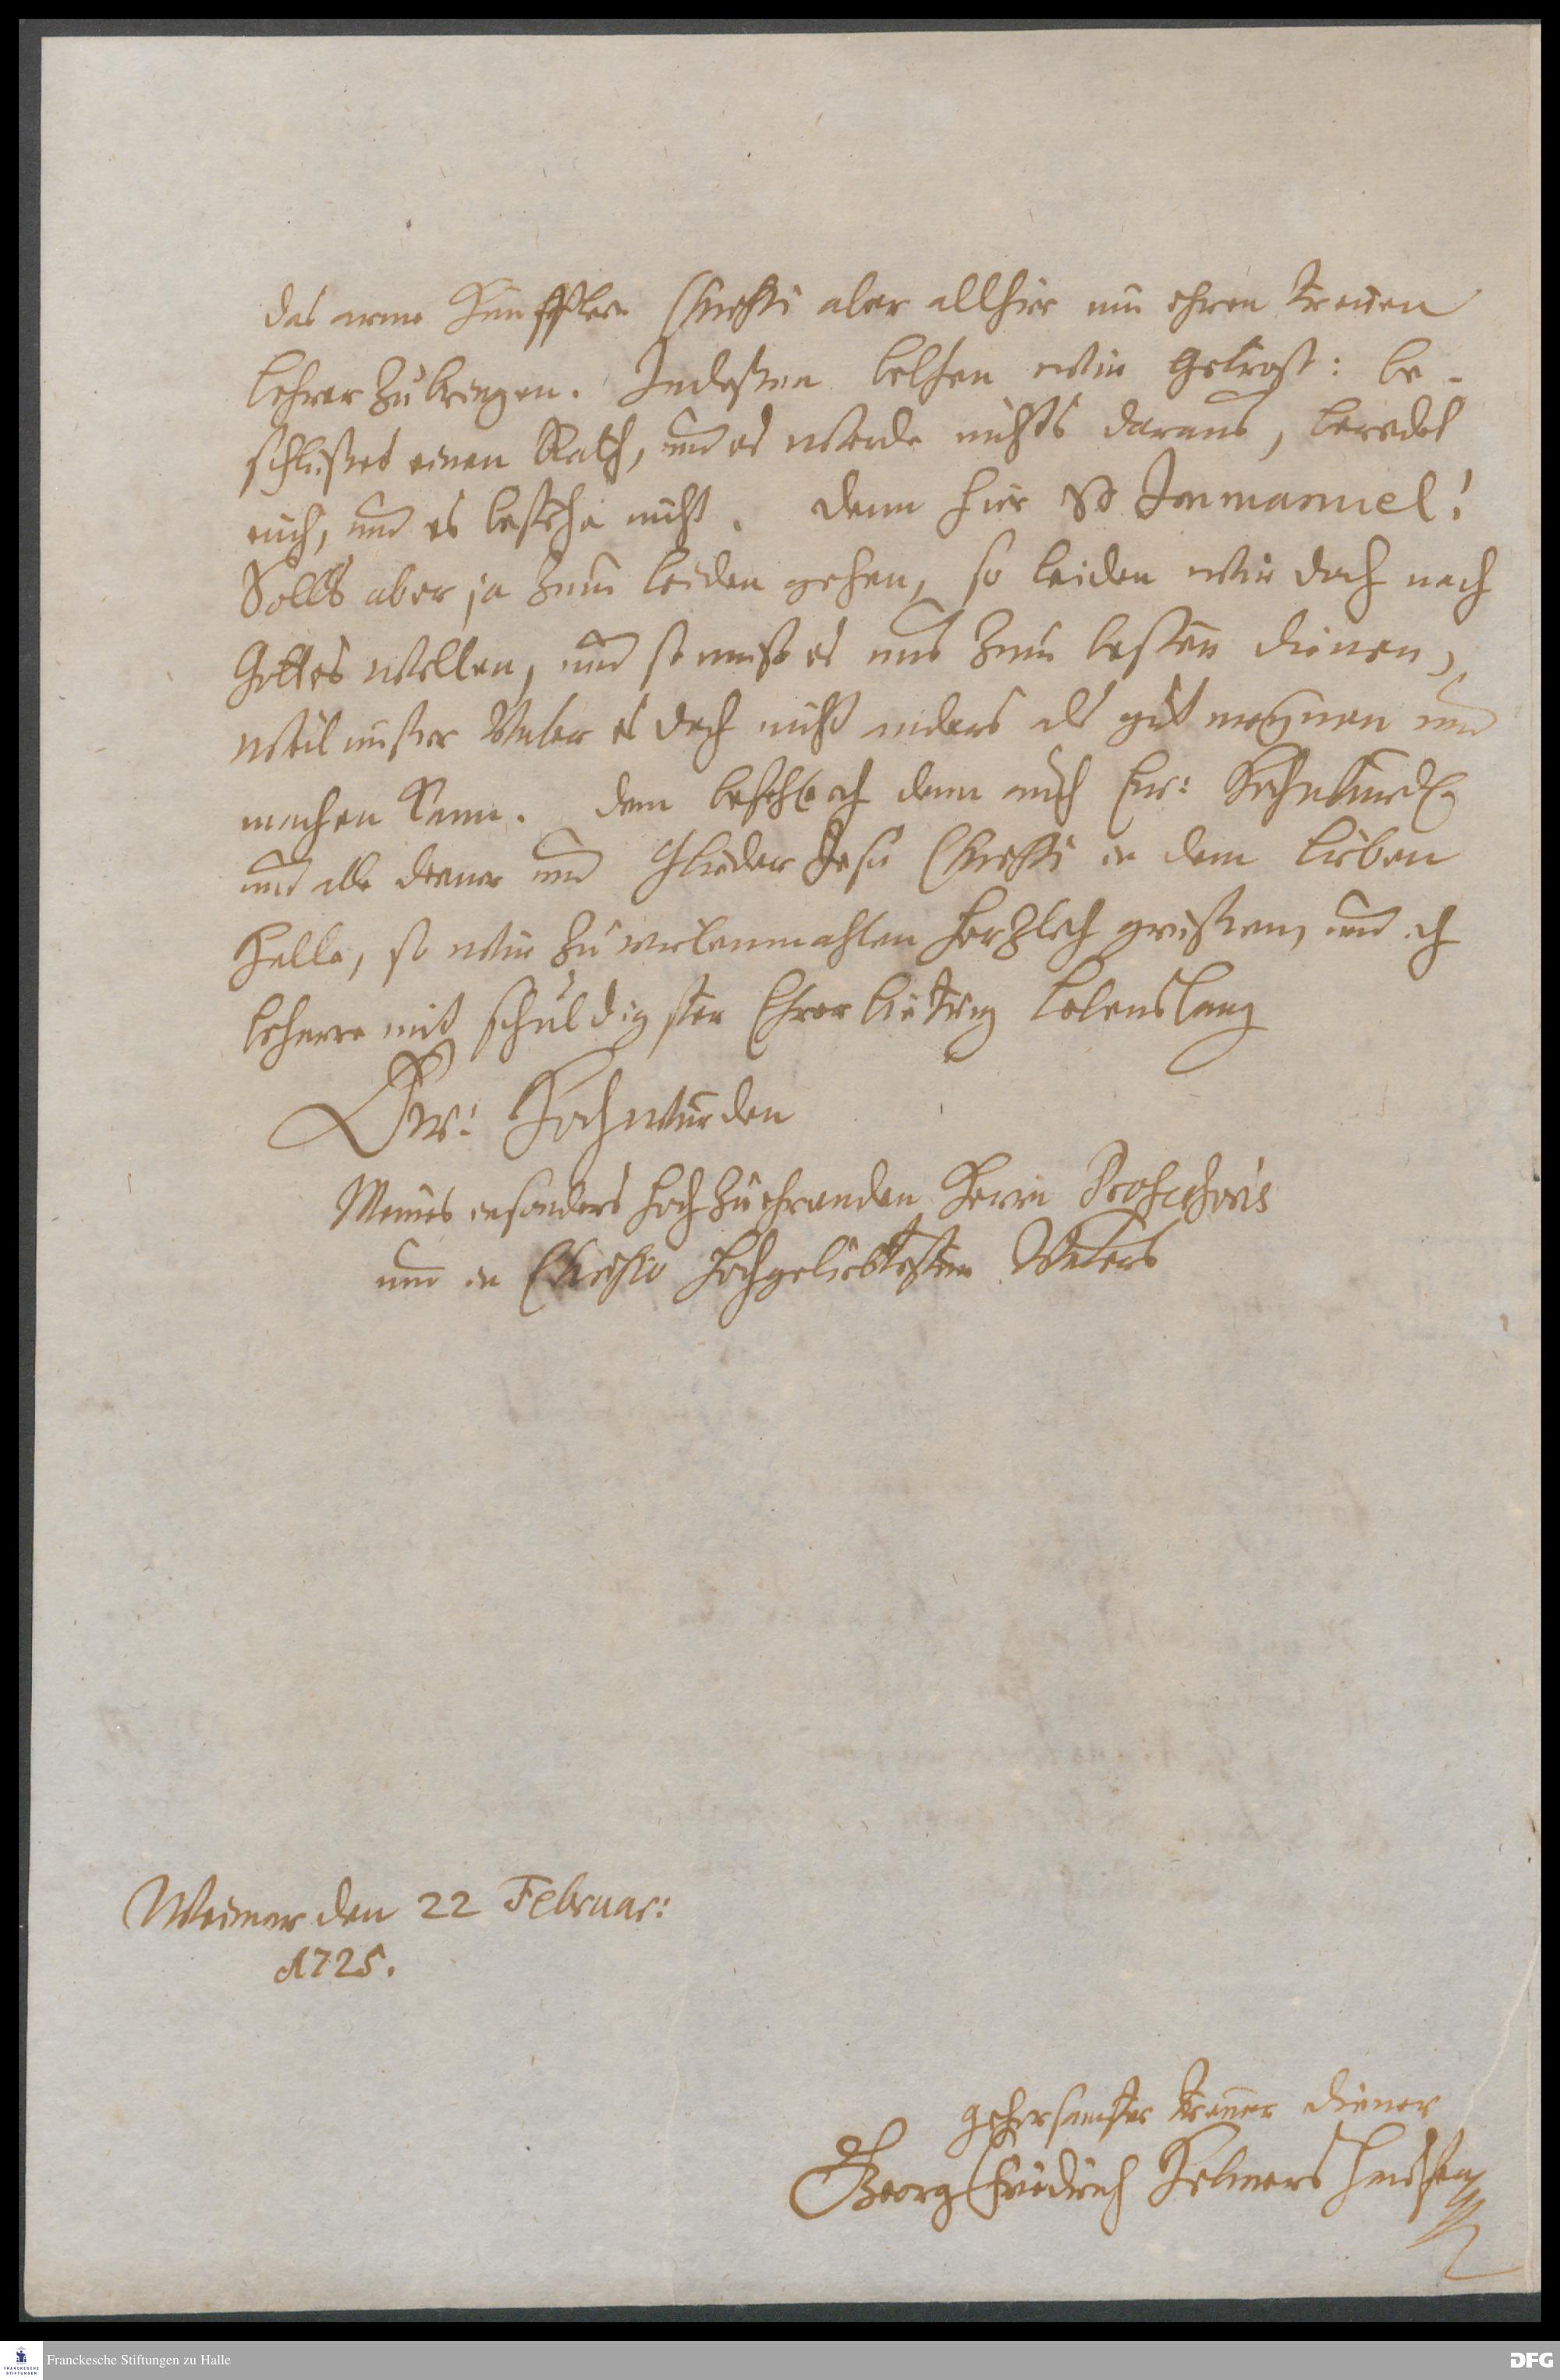 das arme Häufflein Christi aber allhier um ihren treuen
lehrer zu bringen. Indeßen bethen wir getrost: be-
schließet einen Rath, und es werde nichts daraus, beredet
euch, und es bestehe nicht. denn hier ist Immanuel!
Solls aber ja zum leiden gehen, so leiden wir doch nach
Gottes willen, und so muß es uns zum besten dienen,
weil unser Vater es doch nicht anders als gut meynen und
machen kann. dem befehle ich denn auch Eur: Hochwürd.
und alle diener und Glieder Jesu Christi in dem lieben
Halle, so wir zu vielenmahlen herzlich grüßen, und ich
beharre mit schuldigster Ehrerbietung lebenslang
Ew: Hochwürden
Meines insonders hochzuehrenden Herrn Professoris
und in Christo hochgeliebtesten Vaters
Weimar den 22 Februar:
1725.
gehorsamster treuer diener
Georg Friedrich Helmershausen
Franckesche Stiftungen zu Halle
FRANCKESCHE
STIFTUNGEN
DFG